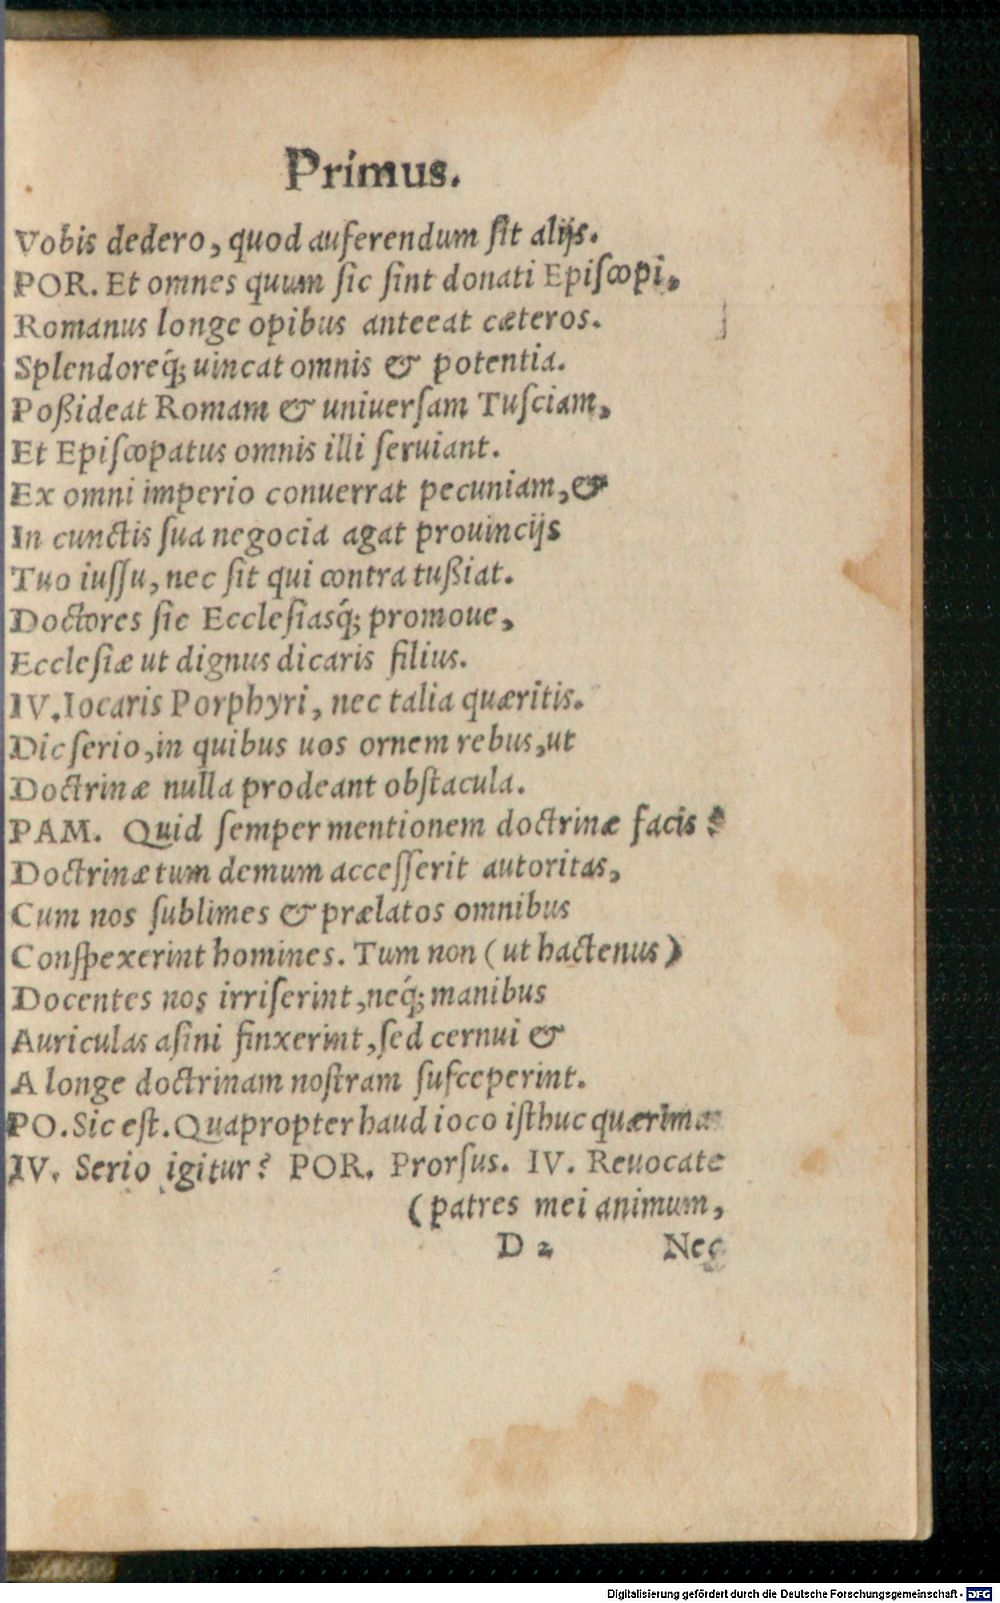 Primus.
Vobis dedero, quod auferendum sit alijs.
POR. Et omnes quum sic sint donati Episcopi,
Romanus longe opibus anteeat cæteros.
Splendoreq́; uincat omnis & potentia.
Poßideat Romam & uniuersam Tusciam,
Et Episcopatus omnis illi seruiant.
Ex omni imperio conuerrat pecuniam, &
In cunctis sua negocia agat prouincijs
Tuo iussu, nec sit qui contra tußiat.
Doctores sic Ecclesiasq́; promoue,
Ecclesiæ ut dignus dicaris filius.
IV. Iocaris Porphyri, nec talia quæritis.
Dic serio, in quibus uos ornem rebus, ut
Doctrinæ nulla prodeant obstacula.
PAM. Quid semper mentionem doctrinæ facis?
Doctrinæ tum demum accesserit autoritas,
Cum nos sublimes & prælatos omnibus
Conspexerint homines. Tum non (ut hactenus)
Docentes nos irriserint, neq́; manibus
Auriculas asini finxerint, sed cernui &
A longe doctrinam nostram susceperint.
PO. Sic est. Quapropter haud ioco isthuc
IV. Serio igitur? POR. Prorsus. IV. Reuocate
(patres mei animum,
D 2 Nec
Digitalisierung gefördert durch die Deutsche Forschungsgemeinschaft - DFG